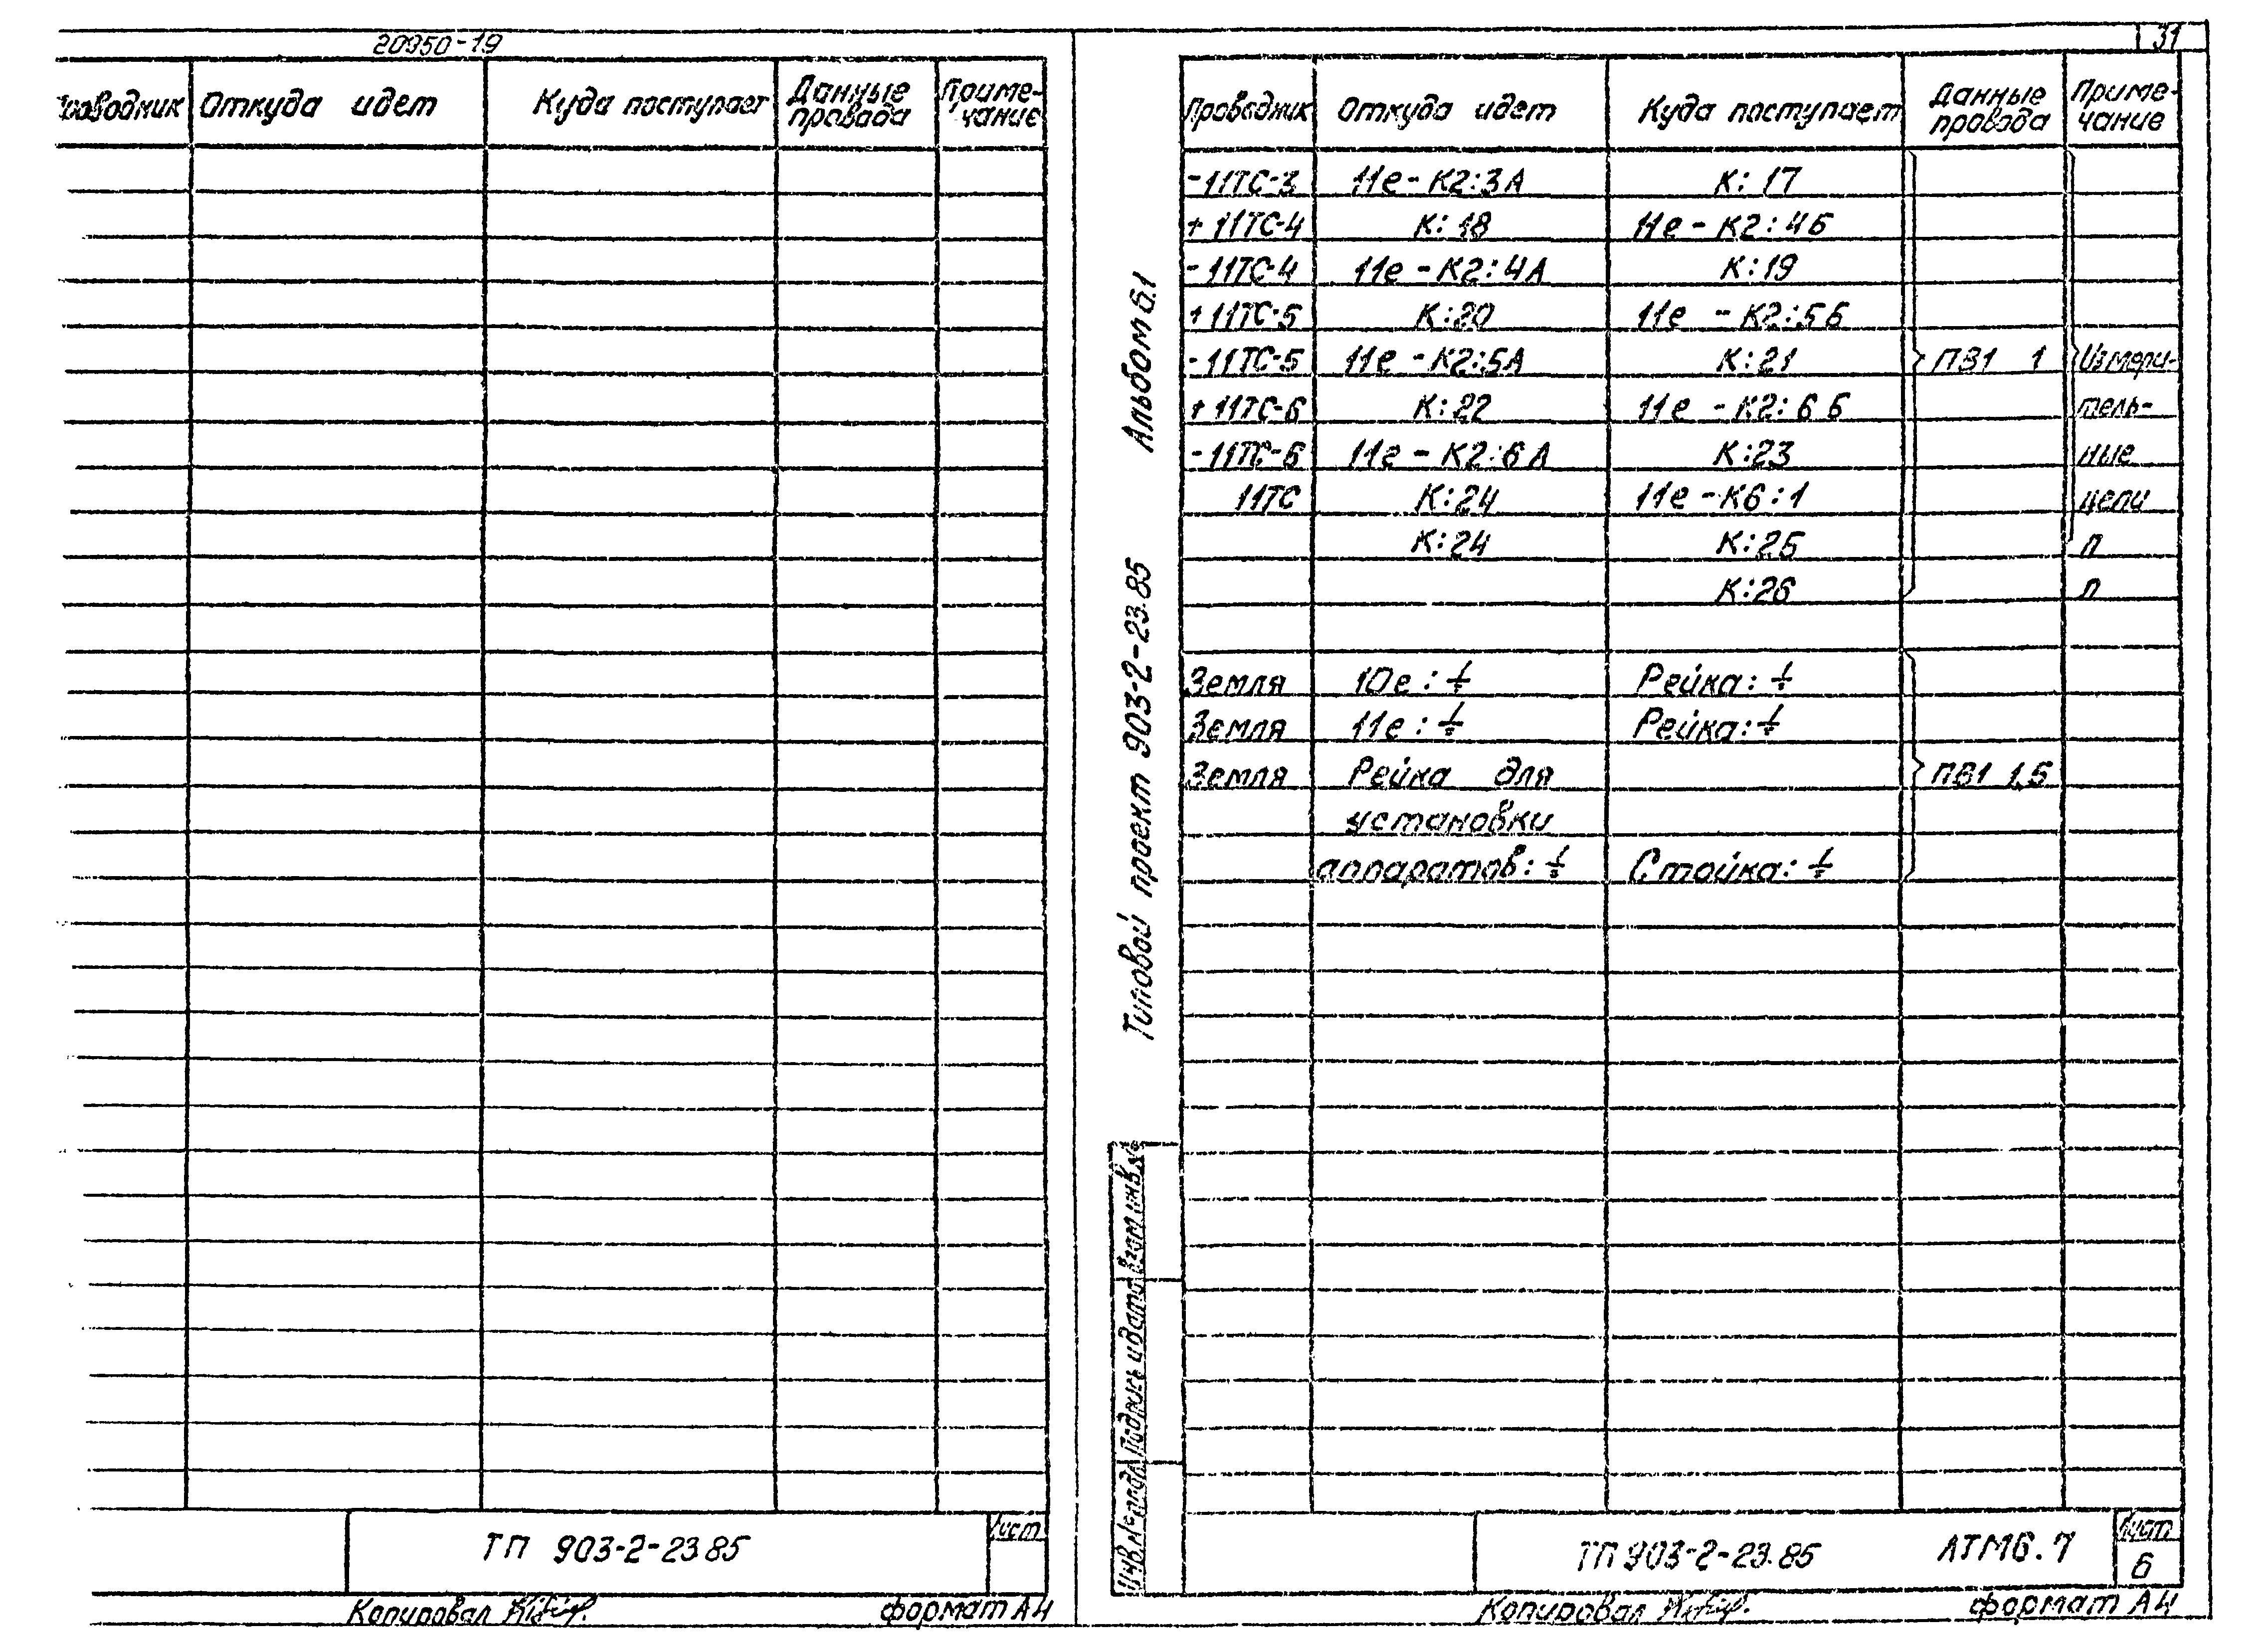 20950-19
Проводник Откуда идет Куда поступает Данные провода Приме-чание
ТП 903-2-23.85 Лист
Копировал
формат А4
31
Альбом 6.1
Типовой проект 903-2-23.85
Проводник Откуда идет Куда поступает Данные провода Приме-чание
-11ТС-3 11е-К2:3А К:17
+11ТС-4 К:18 11е-К2:4Б
-11ТС-4 11е-К2:4А К:19
+11ТС-5 К:20 11е-К2:5Б
-11ТС-5 11е-К2:5А К:21 ПВ1 1 Измери-
+11ТС-6 К:22 11е-К2:6Б тель-
-11ТС-6 11е-К2:6А К:23 ные
11ТС К:24 11е-К6:1 цепи
К:24 К:25 п
К:26 п
Земля 10е:⏚ Рейка:⏚
Земля 11е:⏚ Рейка:⏚
Земля Рейка для ПВ1 1,5
установки
аппаратов:⏚ Стойка:⏚
Инв.№ подл. Подпись и дата Взам.инв.№
ТП 903-2-23.85 АТМ6.7 Лист
6
Копировал
формат А4